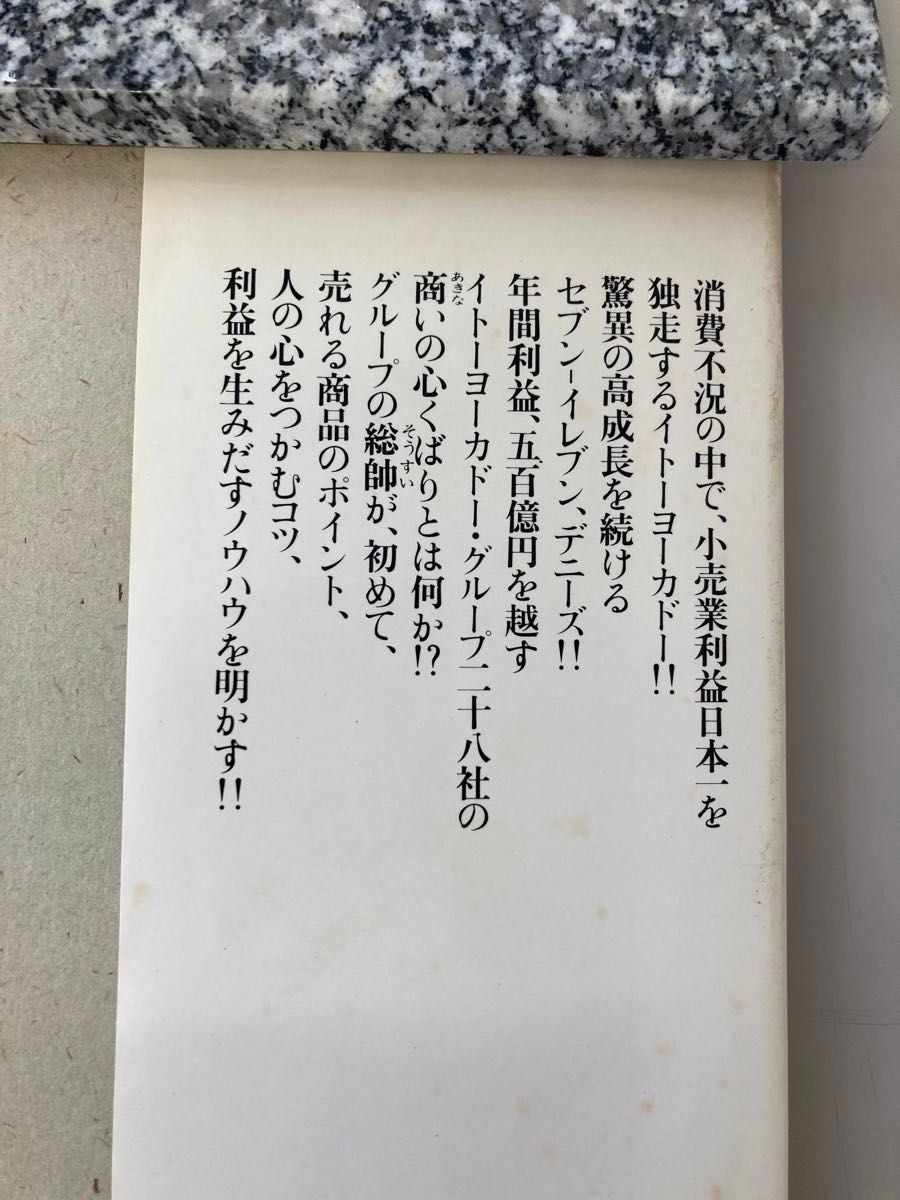 消費不況の中で、小売業利益日本一を
独走するイトーヨーカドー!!
驚異の高成長を続ける
セブン-イレブン、デニーズ!!
年間利益、五百億円を越す
イトーヨーカドー・グループ二十八社の
商いの心くばりとは何か!?
あきな
グループの総帥が、初めて、
そうすい
売れる商品のポイント、
人の心をつかむコツ、
利益を生みだすノウハウを明かす!!